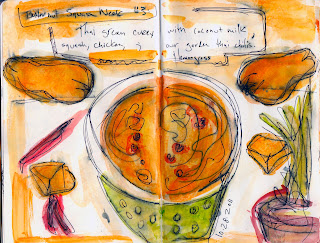 Butternut Squash Week #3
Thai green curry with coconut milk,
squash, chicken, & our garden thai chilis.
lemongrass
10.28.2010